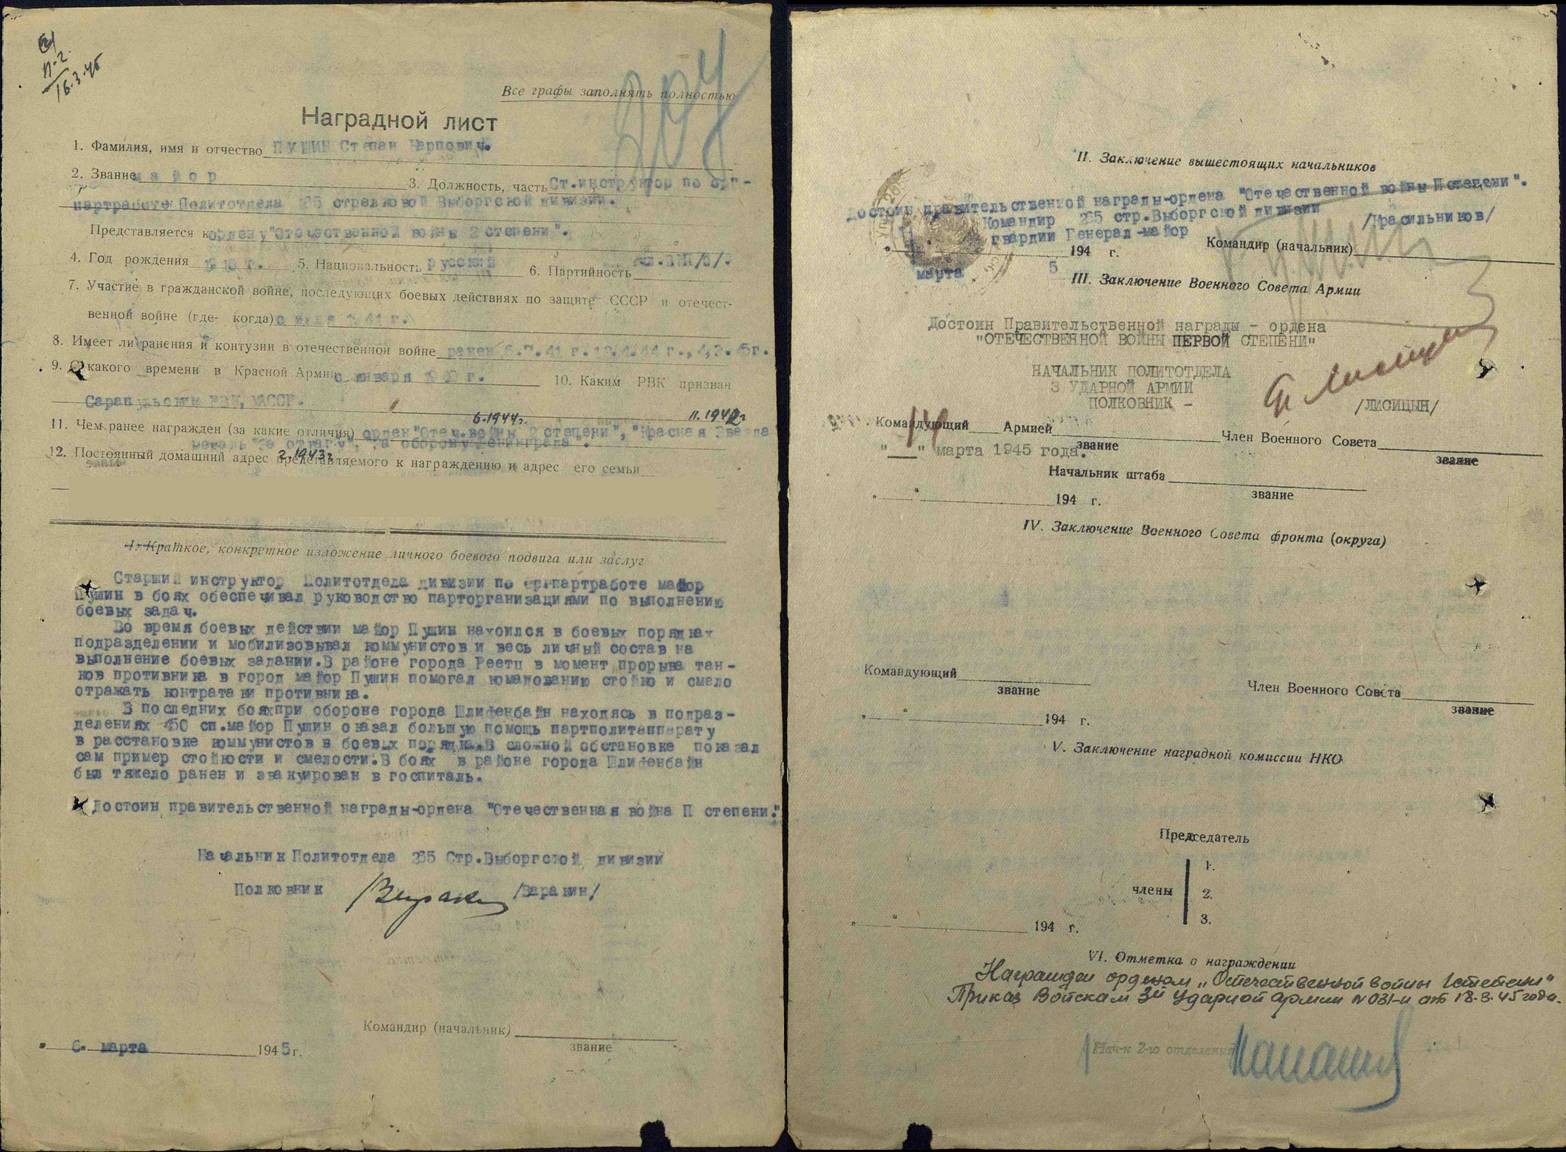 П-2
16.3.45
204
Все графы заполнять полностью
Наградной лист
1. Фамилия, имя и отчество ПУШИН Степан Карпович.
2. Звание майор 3. Должность, часть Ст.инструктор по орг-
партработе Политотдела 265 стрелковой Выборгской дивизии.
Представляется к ордену "Отечественной войны 2 степени".
4. Год рождения 5. Национальность русский 6. Партийность
7. Участие в гражданской войне, последующих боевых действиях по защите СССР и отечест-
венной войне (где когда) с июля 1941 г.
8. Имеет ли ранения и контузии в отечественной войне ранен
9. С какого времени в Красной Армии с января г. 10. Каким РВК призван
Сарапульским РВК, УАССР.
6.1944г. 11.1942
11. Чем ранее награжден (за какие отличия) орден "Отеч.войны 2 степени", "Красная Звезда
медаль "За отвагу", "За оборону Ленинграда".
2.1943г
12. Постоянный домашний адрес представляемого к награждению и адрес его семьи
1. Краткое, конкретное изложение личного боевого подвига или заслуг
Старший инструктор Политотдела дивизии по оргпартработе майор
Пушин в боях обеспечивал руководство парторганизациями по выполнению
боевых задач.
Во время боевых действии майор Пушин находился в боевых порядках
подразделении и мобилизовывал коммунистов и весь личный состав на
выполнение боевых задании.В районе города Реетц в момент прорыва тан-
ков противника в город майор Пушин помогал командованию стойко и смело
отражать контратаки противника.
В последних бояхпри обороне города Шлифенбайн находясь в подраз-
делениях 450 сп.майор Пушин оказал большую помощь партполитаппарату
в расстановке коммунистов в боевых порядках.В сложной обстановке показал
сам пример стойкости и смелости.В боях в районе города Шлифенбайн
был тяжело ранен и эвакуирован в госпиталь.
Достоин правительственной награды-ордена "Отечественная война П степени."
Начальник Политотдела 265 Стр.Выборгской дивизии
Полковник /Варакин/
Командир (начальник)
звание
" 6. марта 1945г.
II. Заключение вышестоящих начальников
Достоин правительственной награды-ордена "Отечественной войны П степени".
Командир 265 стр.Выборгской дивизии
гвардии Генерал-майор /Красильников/
194 г. Командир (начальник)
марта 5
III. Заключение Военного Совета Армии
Достоин Правительственной награды - ордена
"ОТЕЧЕСТВЕННОЙ ВОЙНЫ ПЕРВОЙ СТЕПЕНИ"
НАЧАЛЬНИК ПОЛИТОТДЕЛА
3 УДАРНОЙ АРМИИ
ПОЛКОВНИК - /ЛИСИЦЫН/
Командующий Армией Член Военного Совета
звание звание
"___" марта 1945 года.
Начальник штаба
звание
" " 194 г.
IV. Заключение Военного Совета фронта (округа)
Командующий Член Военного Совета
звание звание
" " 194 г.
V. Заключение наградной комиссии НКО
Председатель
члены
1.
2.
3.
" " 194 г.
VI. Отметка о награждении
Награжден орденом „Отечественной войны I степени"
Приказ Войскам 3й Ударной Армии N 081-н от 18.3.45 года.
Нач-к 2-го отделения